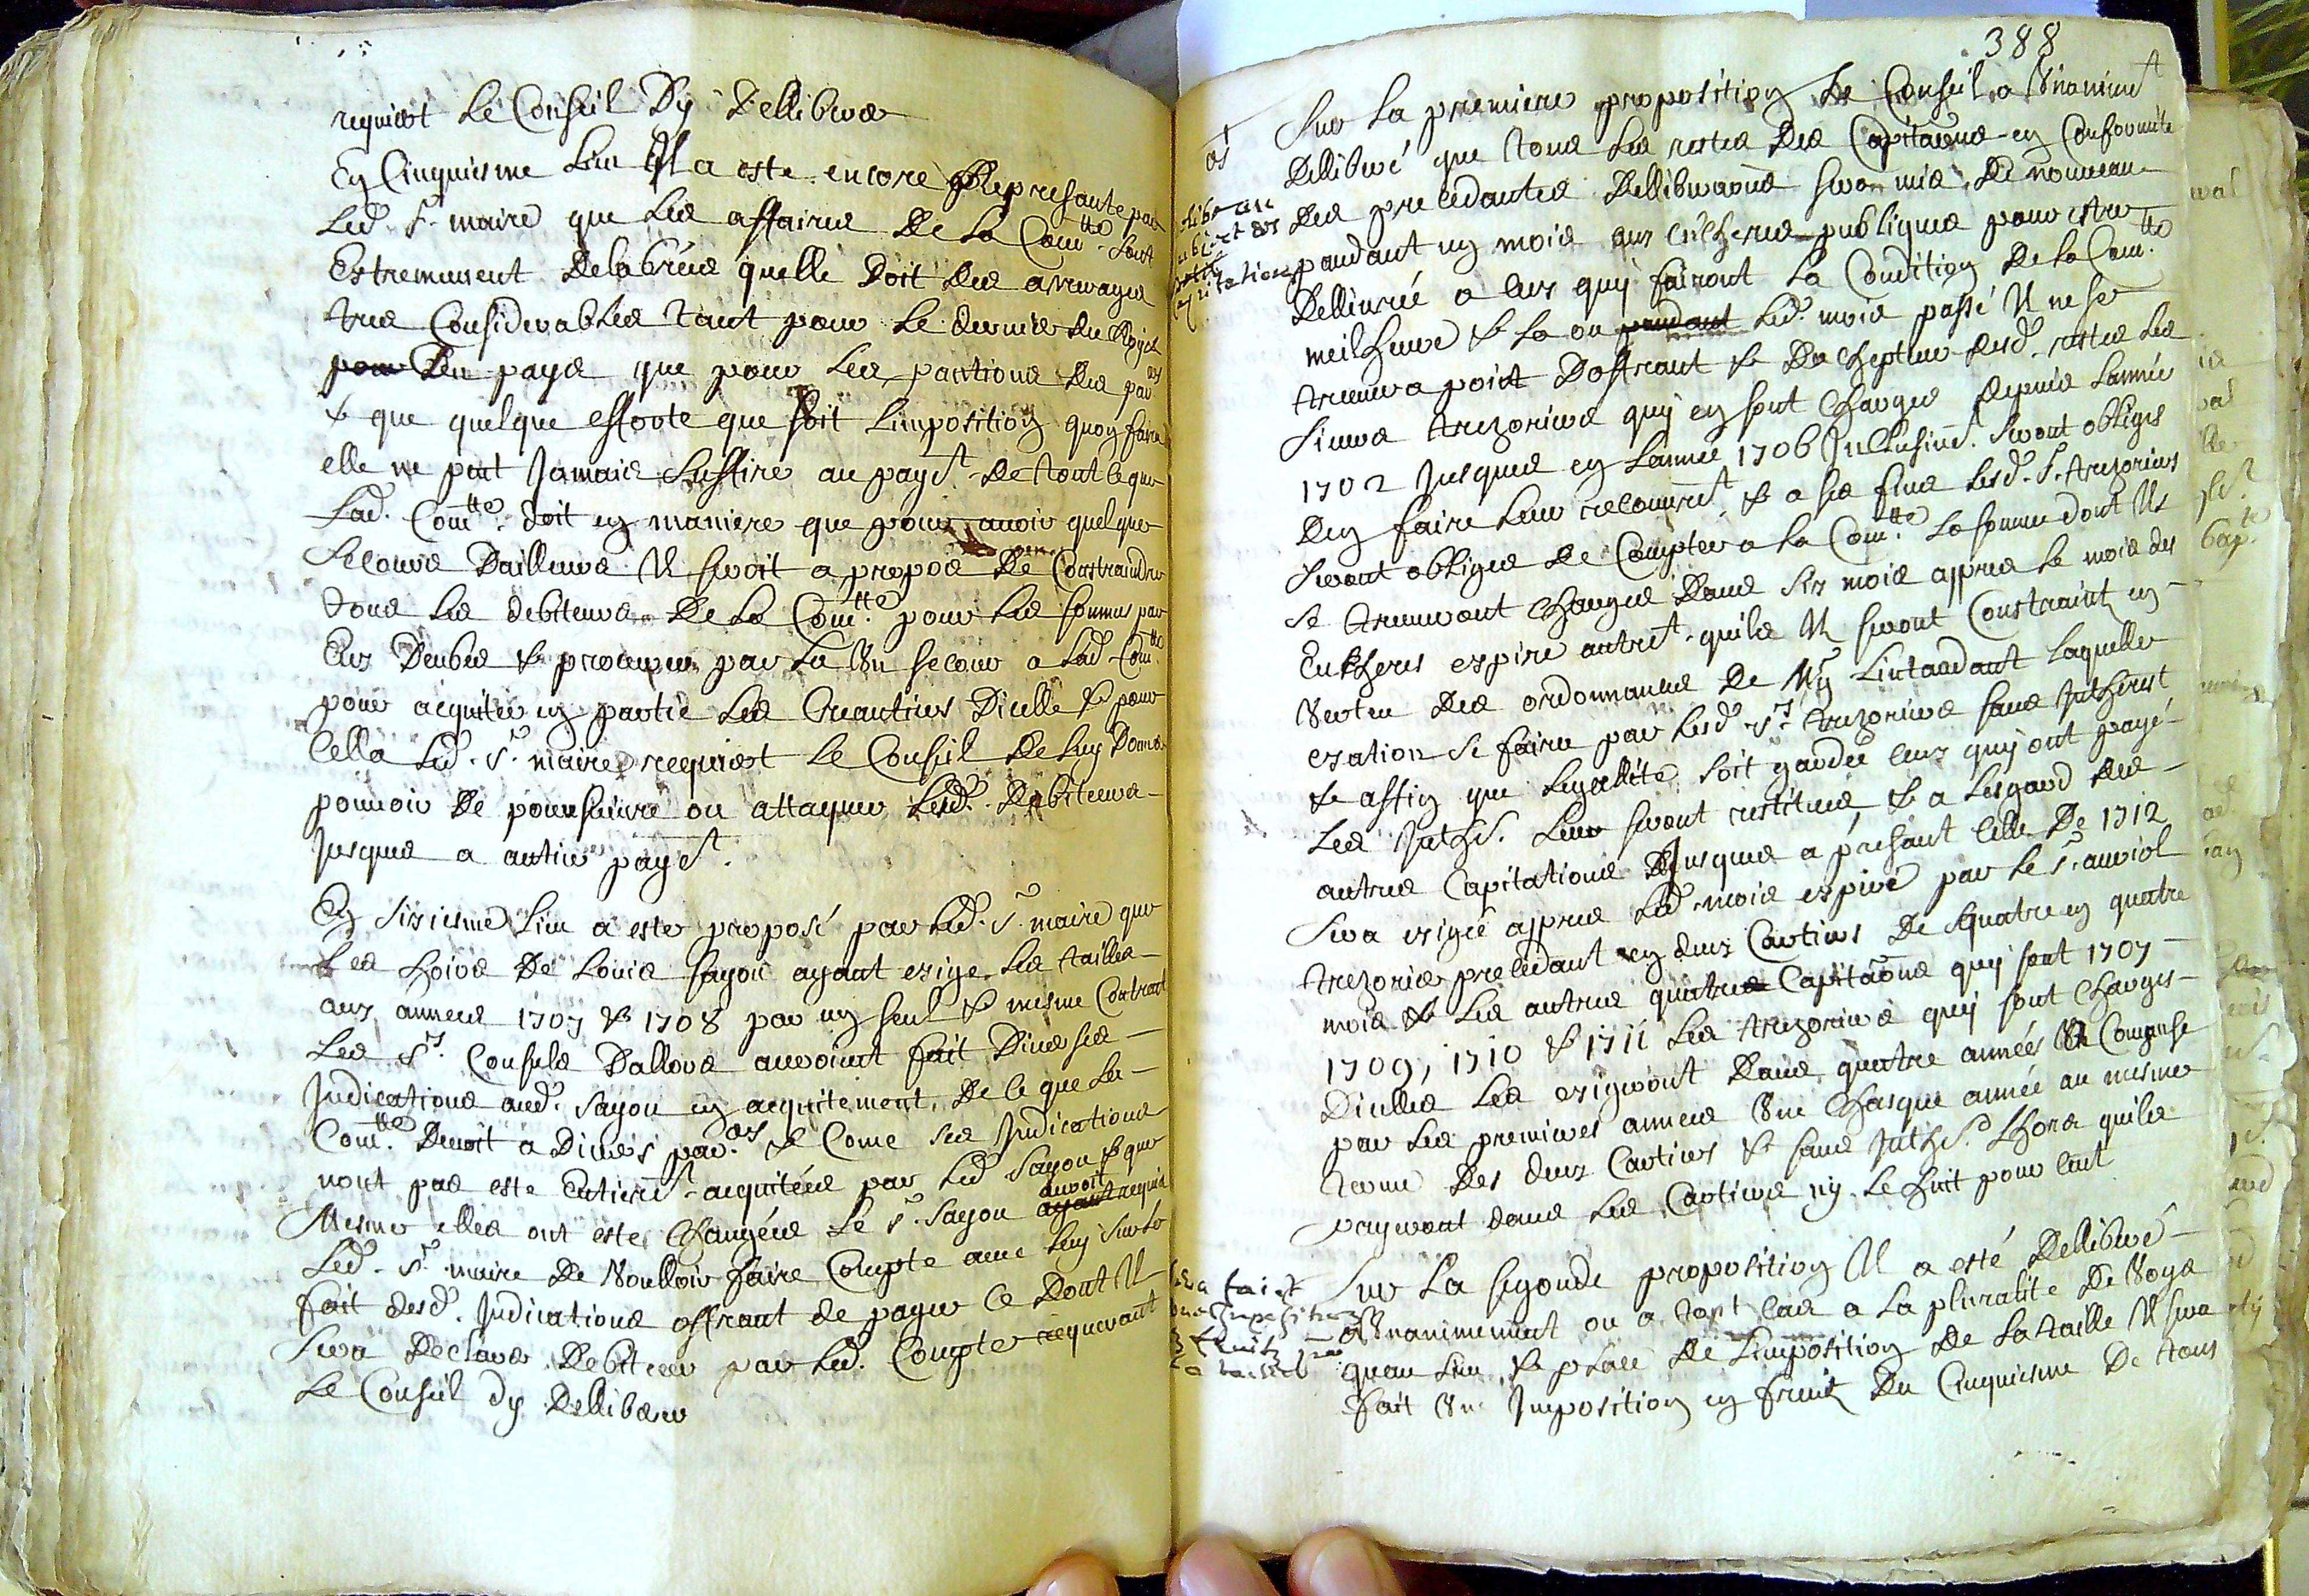 requiert Le Conseil Dy Dellibérer
En Cinquiesme Lieu Il a esté encore Represanté par
Led. Sr. maire que Les affaires De La Comtté. sont
Extremement Delabrées quelle Doit Des arrerages
tres Considerables tant pour Le denier du Roy et
pour Du pays que pour Les pantions Des parers
& que quelque efforte que soit Limposition quon faire
elle ne peut Jamais suffire au payet. De tout ce que
Lad. Comtté. doit en maniere que pour avoir quelque
Secours Dailleurs Il seroit a propos De Constraindre
tous Les debiteurs De La Comtté. pour Les sommes par
Eux Deubes & procurer par La Un secour a Lad. Comtté
pour acquiter en partie Les Creantiers Dicelle & pour
Cella Led. Sr. maire requiert Le Conseil De Luy Donner
pouvoir De poursuivre ou attaquer Lesd. Debiteurs
Jusques a antier payet.
En Sixiesme Lieu a este proposé par Led. Sr. maire que
Les hoirs De Louis Sayou ayant exige Les tailles
aux annees 1707 & 1708 par un seul & mesme Contrat
Les Srs. Consuls Dallors auroint fait Diverses
Indications aud. Sayou en acquitement De ce que La
Comtté. Devoit a Divers parers & Come Ses Indications
nont pas este Entieret. acquitées par Led. Sayou & que
Mesme elles ont este Changées Le Sr. Sayou auroit requis
Led. Sr. maire De Voulloir faire Compte avec Luy Sur Le
fait desd. Indications offrant de payer Ce Dont Il
Sera Declarer Debiteur par Led. Compte requerant
Le Conseil dy Delliberer
388
Sur La premiere proposition Le Conseil a Unanimet
Delliberé que tous Les restes Des Capitaons en Conformité
Des precedantes Dellibraons seron mis De nouveau
pandant un mois aux encheres publiques pour estre
Dellivrée a ceux quy fairont La Condition De La Comtté.
meilheure & La ou pendant Led. mois passé Il ne se
treuvera point Doffrant & De Chepteur desd. restes Les
Sieurs trezoriers quy en sont Charges Depuis Lannée
1702 Jusques en Lannée 1706 Inclusivet. Seront obliges
Den faire Leur recouvret. & a ses fins Lesd. Srs. trezoriers
Seront obliges De Compter a La Comtté. La somme dont Ils
se treuveront Charges Dans Six mois appres Le mois des
Encheres expire autret. quils Il seront Constraint en
Vertu Des ordonnances De Mgr Lintandant Laquelle
exation se faire par Lesd. Srs. trezoriers sans Intherest
& affin que Legallité soit gardée ceux quy ont payé
Les Inthts. Leur seront restitués & a Lesgard Des
autres Capitations Jusques a présant Celle De 1712
Sera exigée appres Led. mois expiré par Le Sr. auriol
trezorier precedant en deux Cartiers De quatre en quatre
mois & Les autres quatre Capitaons quy sont 1707
1709, 1710 & 1711 Les trezoriers quy sont Charges
Dicelles Les exigeront Dans quatre années Et Comense
par Les premieres annees Une Chasque année au mesme
terme Des deux Cartiers & sans Intht. Lhors quils
payeront dans Les Cartiers ny Le huit pour Cent
Sur La segonde proposition Il a esté Delliberé
Unanimement ou a tout Cas a La pluralité De Voys
quau Lieu & place De Limposition De La taille Il sera
fait Une Imposition en fruits Du Cinquiesme De tous